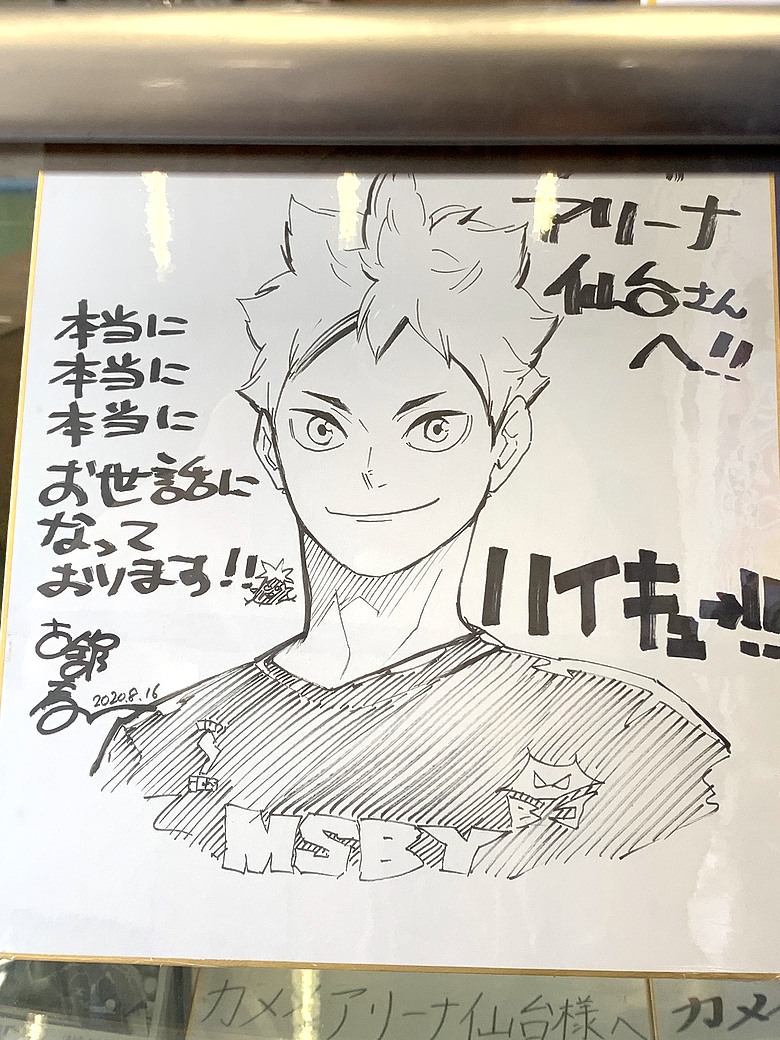 アリーナ
仙台さん
へ!!
本当に
本当に
本当に
お世話に
なって
おります!!
ハイキュー!!
古舘
春一
2020.8.16
MSBY
カメイアリーナ仙台様へ
カメ